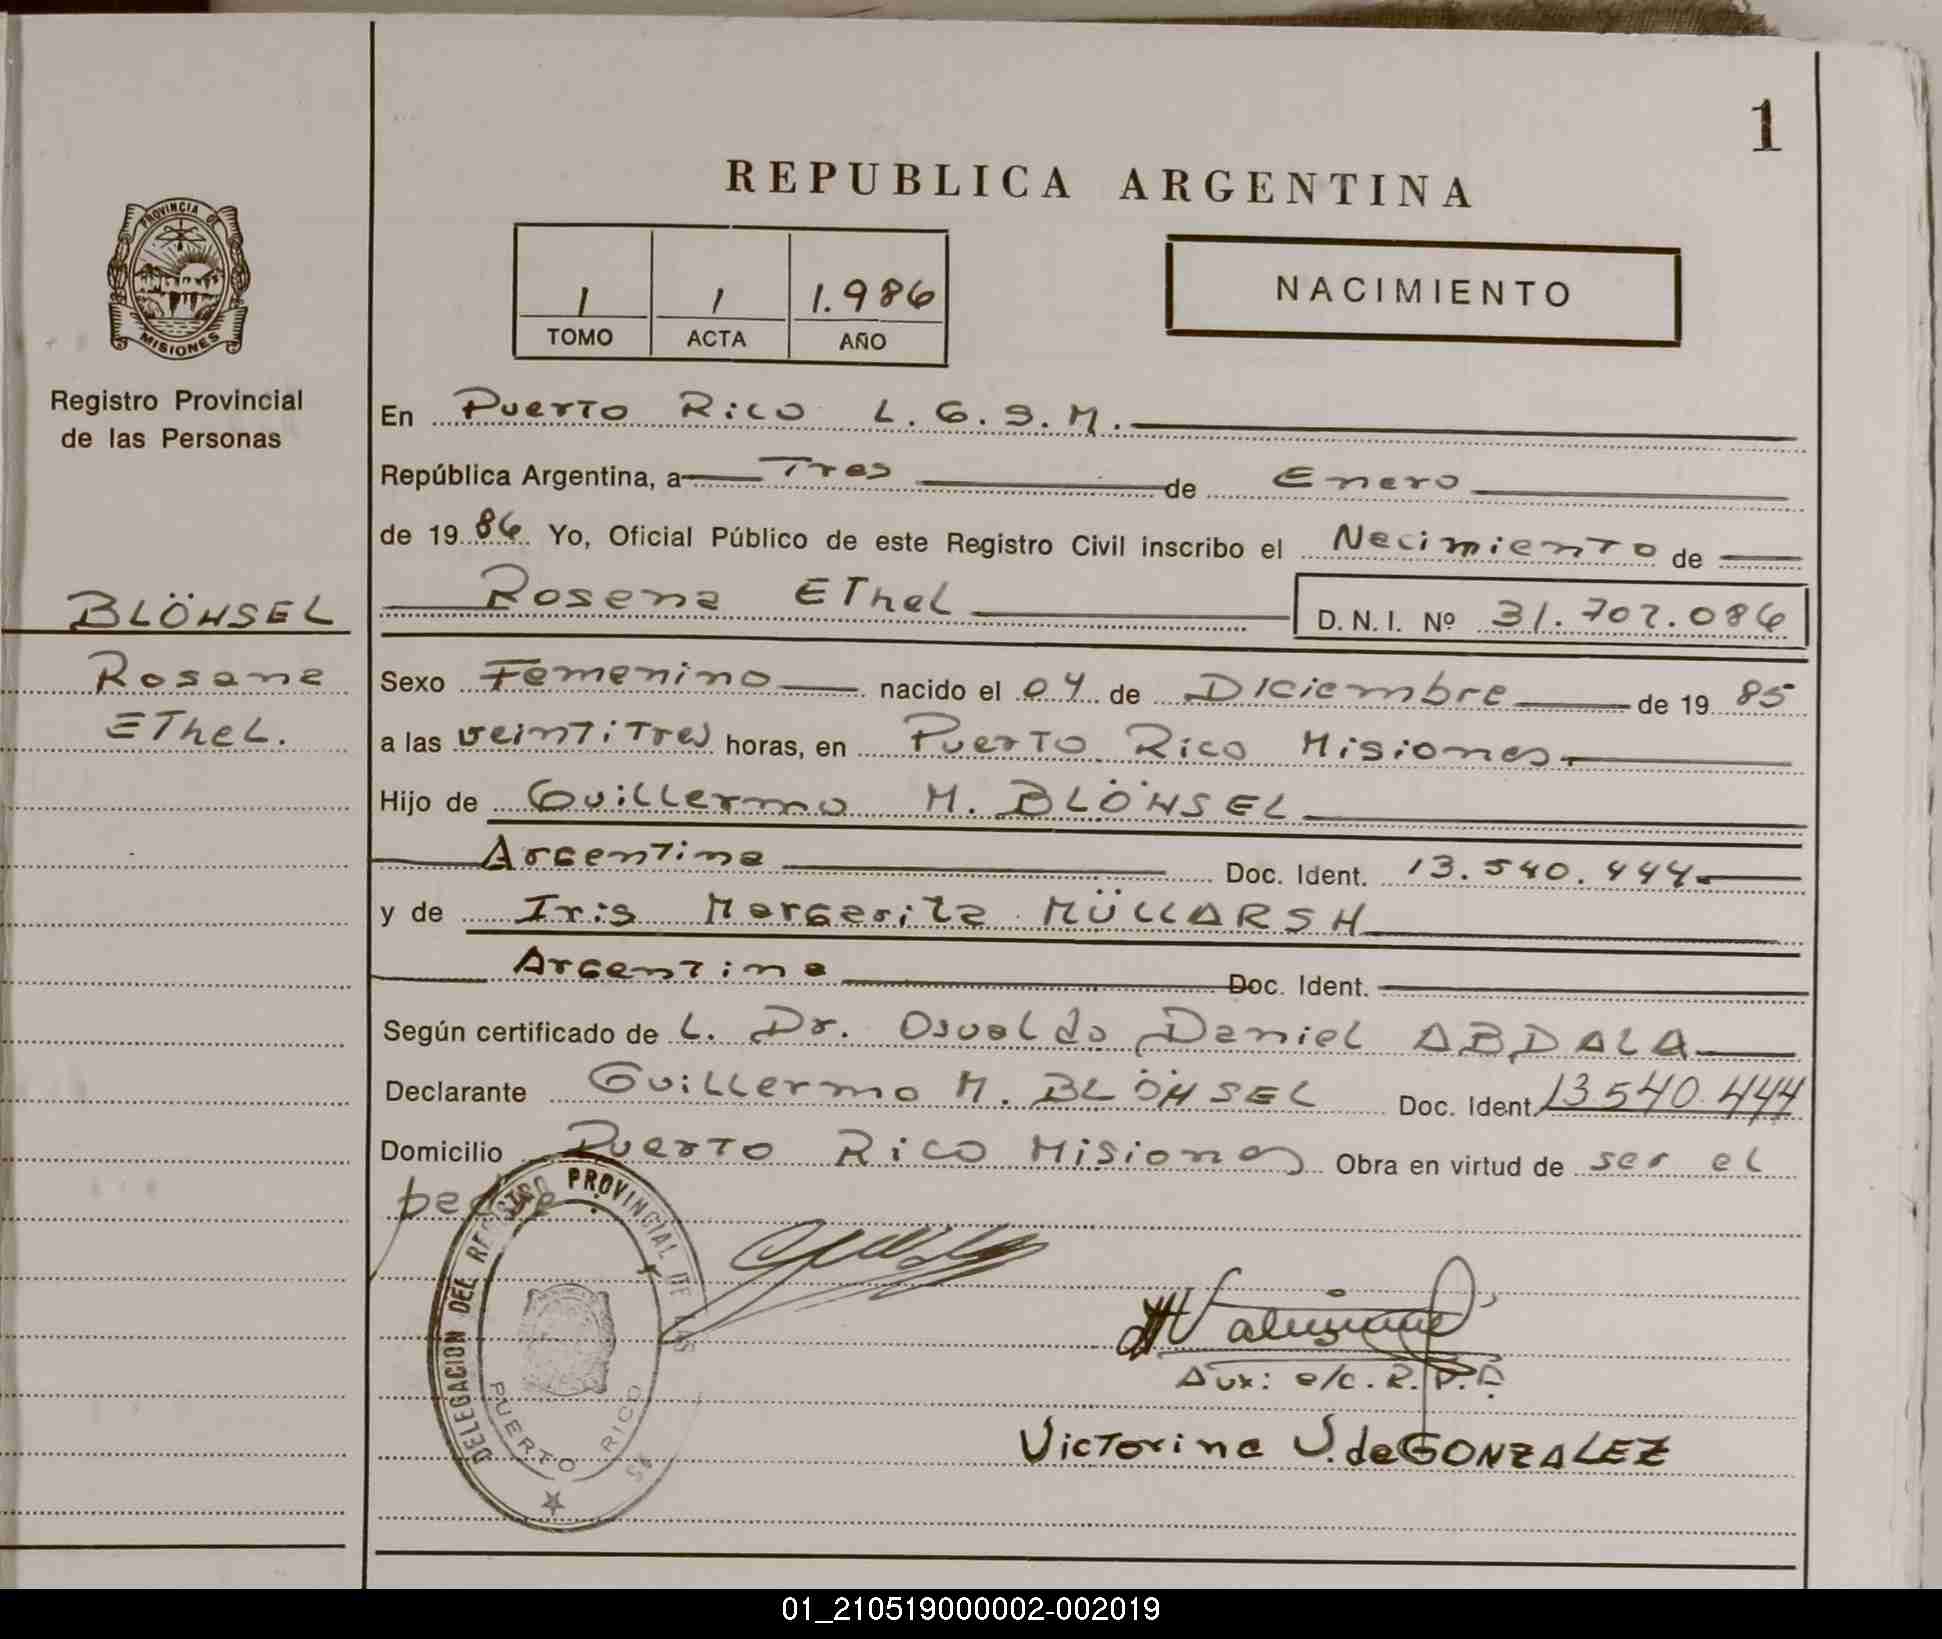 1
REPUBLICA ARGENTINA
PROVINCIA DE
MISIONES
Registro Provincial
de las Personas
1 1 1.986
TOMO ACTA AÑO
NACIMIENTO
En Puerto Rico L.G.S.M.
República Argentina, a Tres de Enero
de 1986 Yo, Oficial Público de este Registro Civil inscribo el Nacimiento de
BLÖHSEL
Rosana
Ethel.
Rosana Ethel D.N.I. Nº 31.702.086
Sexo Femenino nacido el 04 de Diciembre de 1985
a las veintitres horas, en Puerto Rico Misiones
Hijo de Guillermo M. BLÖHSEL
Argentina Doc. Ident. 13.540.444
y de Iris Margarita MÜLLARSH
Argentina Doc. Ident.
Según certificado de L. Dr. Osvaldo Daniel ABDALA
Declarante Guillermo M. BLÖHSEL Doc. Ident. 13.540.444
Domicilio Puerto Rico Misiones Obra en virtud de ser el
padre
DELEGACION DEL REGISTRO PROVINCIAL DE LAS
PUERTO RICO
Aux: a/c. R.P.P.
Victorina S. de GONZALEZ
01_210519000002-002019